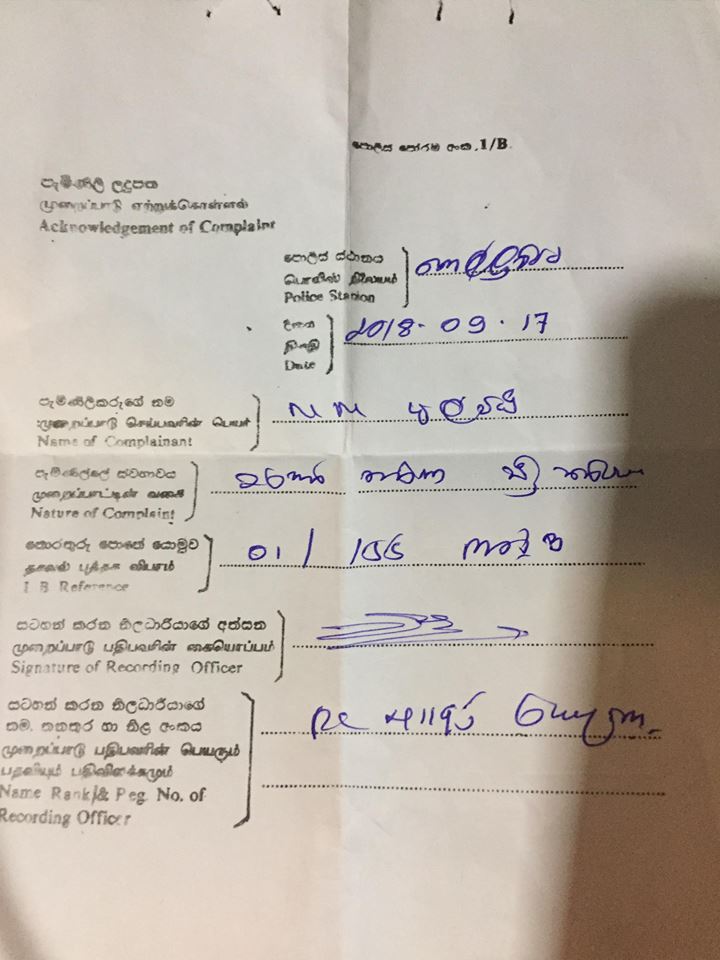 පොලිස් පෝරම අංක 1/B
පැමිණිලි ලදුපත
முறைப்பாடு ஏற்றுக்கொள்ளல்
Acknowledgement of Complaint
පොලිස් ස්ථානය
பொலிஸ் நிலையம்
Police Station
දිනය
திகதி
Date
2018. 09. 17
පැමිණිලිකරුගේ නම
முறைப்பாடு செய்பவரின் பெயர்
Name of Complainant
පැමිණිල්ලේ ස්වභාවය
முறைப்பாட்டின் வகை
Nature of Complaint
තොරතුරු පොතේ යොමුව
தகவல் புத்தக விபரம்
I B Reference
01 / 166
සටහන් කරන නිලධාරියාගේ අත්සන
முறைப்பாடு பதிபவரின் கையொப்பம்
Signature of Recording Officer
සටහන් කරන නිලධාරියාගේ
නම, තනතුර හා නිළ අංකය
முறைப்பாடு பதிபவரின் பெயரும்
பதவியும் பதிவிலக்கமும்
Name Rank & Reg. No. of
Recording Officer